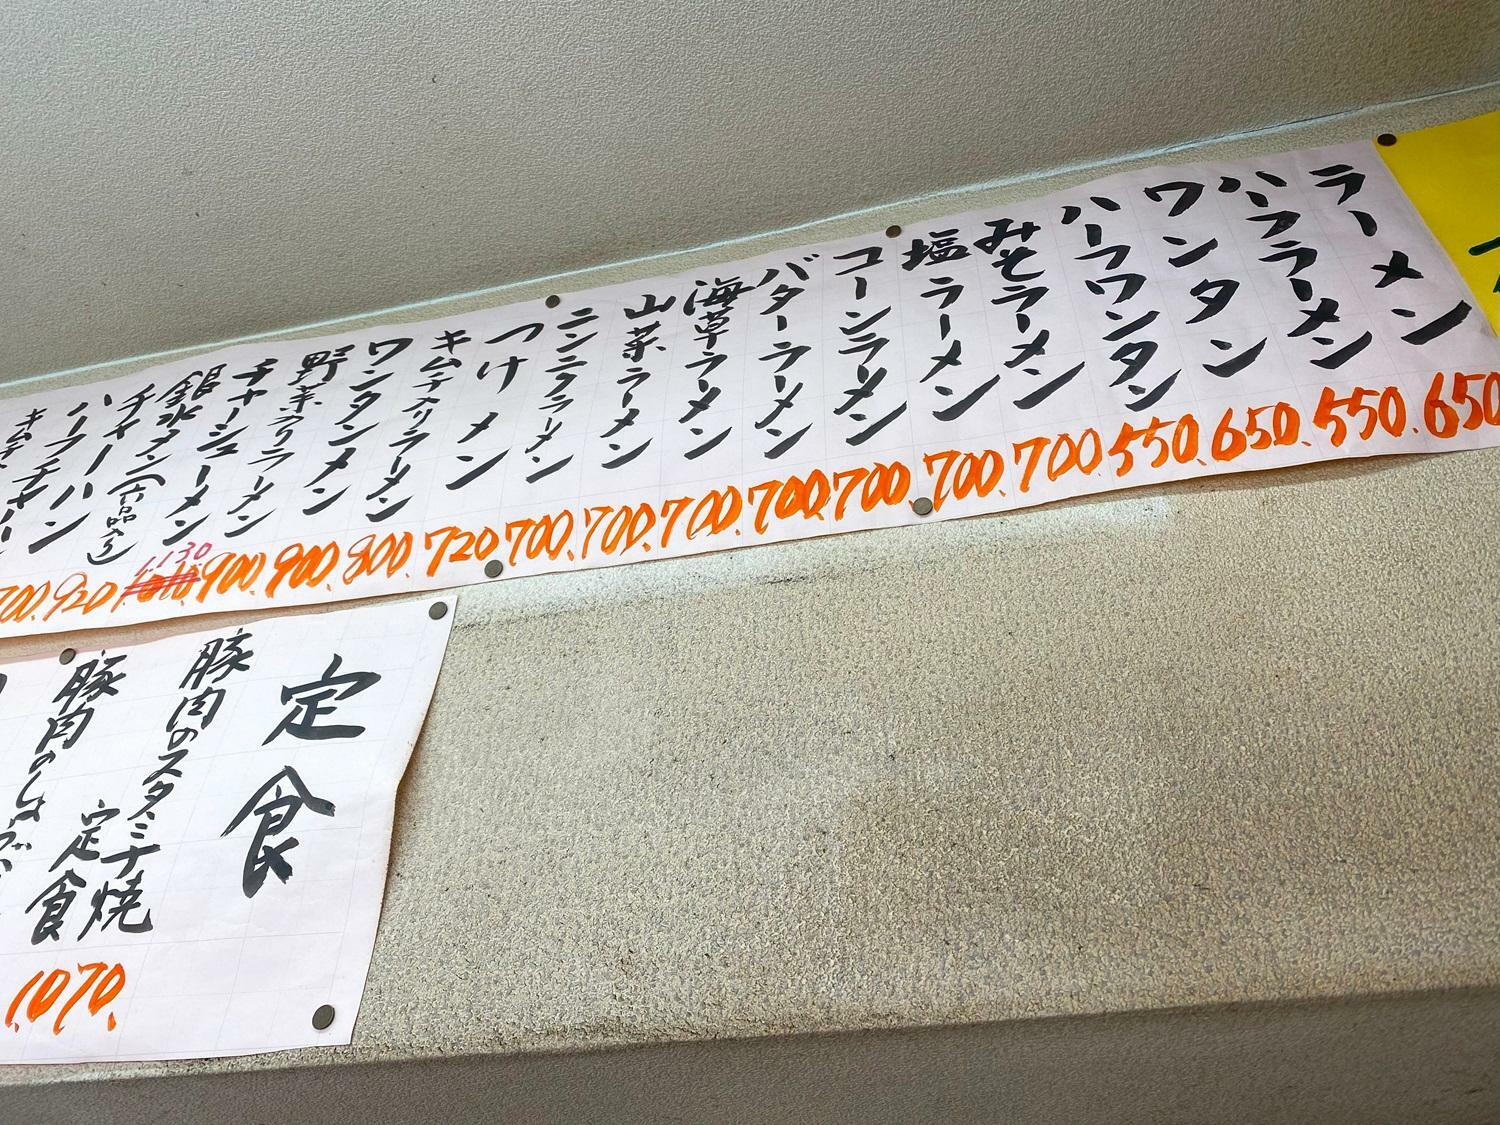 ラーメン 650.
ハーフラーメン 550.
ワンタン 650.
ハーフワンタン 550.
みそラーメン 700
塩ラーメン 700.
コーンラーメン 700.
バターラーメン 700.
海草ラーメン 700.
山菜ラーメン 700.
ニンニクラーメン 700.
つけメン 720
キムチ入りラーメン 800.
ワンタンメン 900.
野菜入りラーメン 900.
チャーシューメン 1130
銀水タンメン(六品入り) 920
チャーハン 700.
ハーフチャーハン
定食
豚肉のスタミナ焼定食 1,070.
豚肉のしょうが